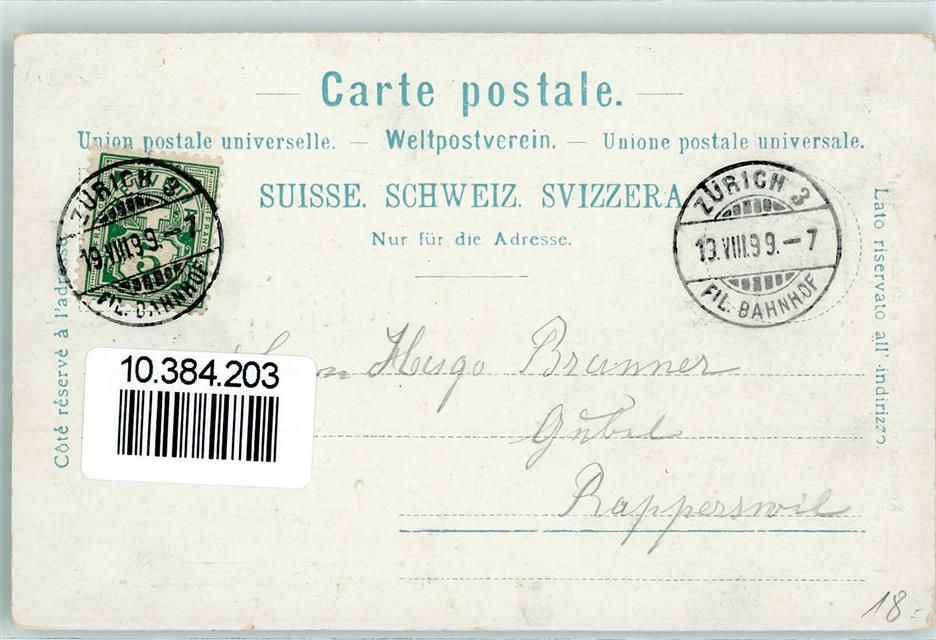 Carte postale.
Union postale universelle. — Weltpostverein. — Unione postale universale.
SUISSE. SCHWEIZ. SVIZZERA
Nur für die Adresse.
ZÜRICH 3
19.VIII.99.-7
FIL. BAHNHOF
ZÜRICH 3
19.VIII.99.-7
FIL. BAHNHOF
Côté réservé à l'adresse.
Lato riservato all' indirizzo.
10.384.203
Hugo Brunner
Gubel
Rapperswil
18.-